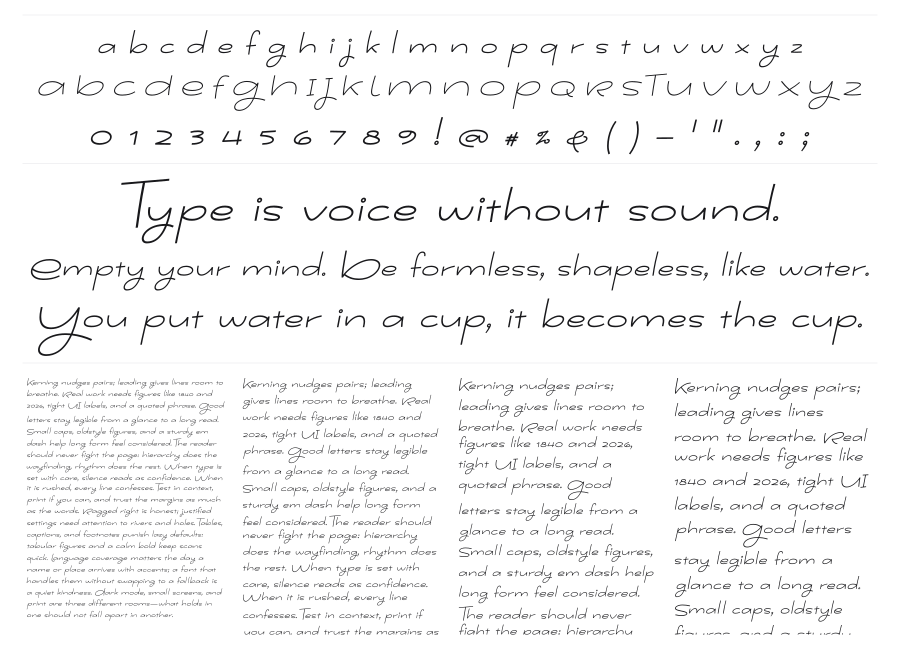 a b c d e f g h i j k l m n o p q r s t u v w x y z
A B C D E F G H I J K L M N O P Q R S T U V W X Y Z
0 1 2 3 4 5 6 7 8 9 ! @ # % & ( ) – ' " . , : ;
Type is voice without sound.
Empty your mind. Be formless, shapeless, like water.
You put water in a cup, it becomes the cup.
Kerning nudges pairs; leading gives lines room to
breathe. Real work needs figures like 1840 and
2026, tight UI labels, and a quoted phrase. Good
letters stay legible from a glance to a long read.
Small caps, oldstyle figures, and a sturdy em
dash help long form feel considered. The reader
should never fight the page: hierarchy does the
wayfinding, rhythm does the rest. When type is
set with care, silence reads as confidence. When
it is rushed, every line confesses. Test in context,
print if you can, and trust the margins as much
as the words. Ragged right is honest; justified
settings need attention to rivers and holes. Tables,
captions, and footnotes punish lazy defaults:
tabular figures and a calm bold keep scans
quick. Language coverage matters the day a
name or place arrives with accents; a font that
handles them without swapping to a fallback is
a quiet kindness. Dark mode, small screens, and
print are three different rooms—what holds in
one should not fall apart in another.
Kerning nudges pairs; leading
gives lines room to breathe. Real
work needs figures like 1840 and
2026, tight UI labels, and a quoted
phrase. Good letters stay legible
from a glance to a long read.
Small caps, oldstyle figures, and a
sturdy em dash help long form
feel considered. The reader should
never fight the page: hierarchy
does the wayfinding, rhythm does
the rest. When type is set with
care, silence reads as confidence.
When it is rushed, every line
confesses. Test in context, print if
you can, and trust the margins as
Kerning nudges pairs;
leading gives lines room to
breathe. Real work needs
figures like 1840 and 2026,
tight UI labels, and a
quoted phrase. Good
letters stay legible from a
glance to a long read.
Small caps, oldstyle figures,
and a sturdy em dash help
long form feel considered.
The reader should never
fight the page: hierarchy
Kerning nudges pairs;
leading gives lines
room to breathe. Real
work needs figures like
1840 and 2026, tight UI
labels, and a quoted
phrase. Good letters
stay legible from a
glance to a long read.
Small caps, oldstyle
figures, and a sturdy